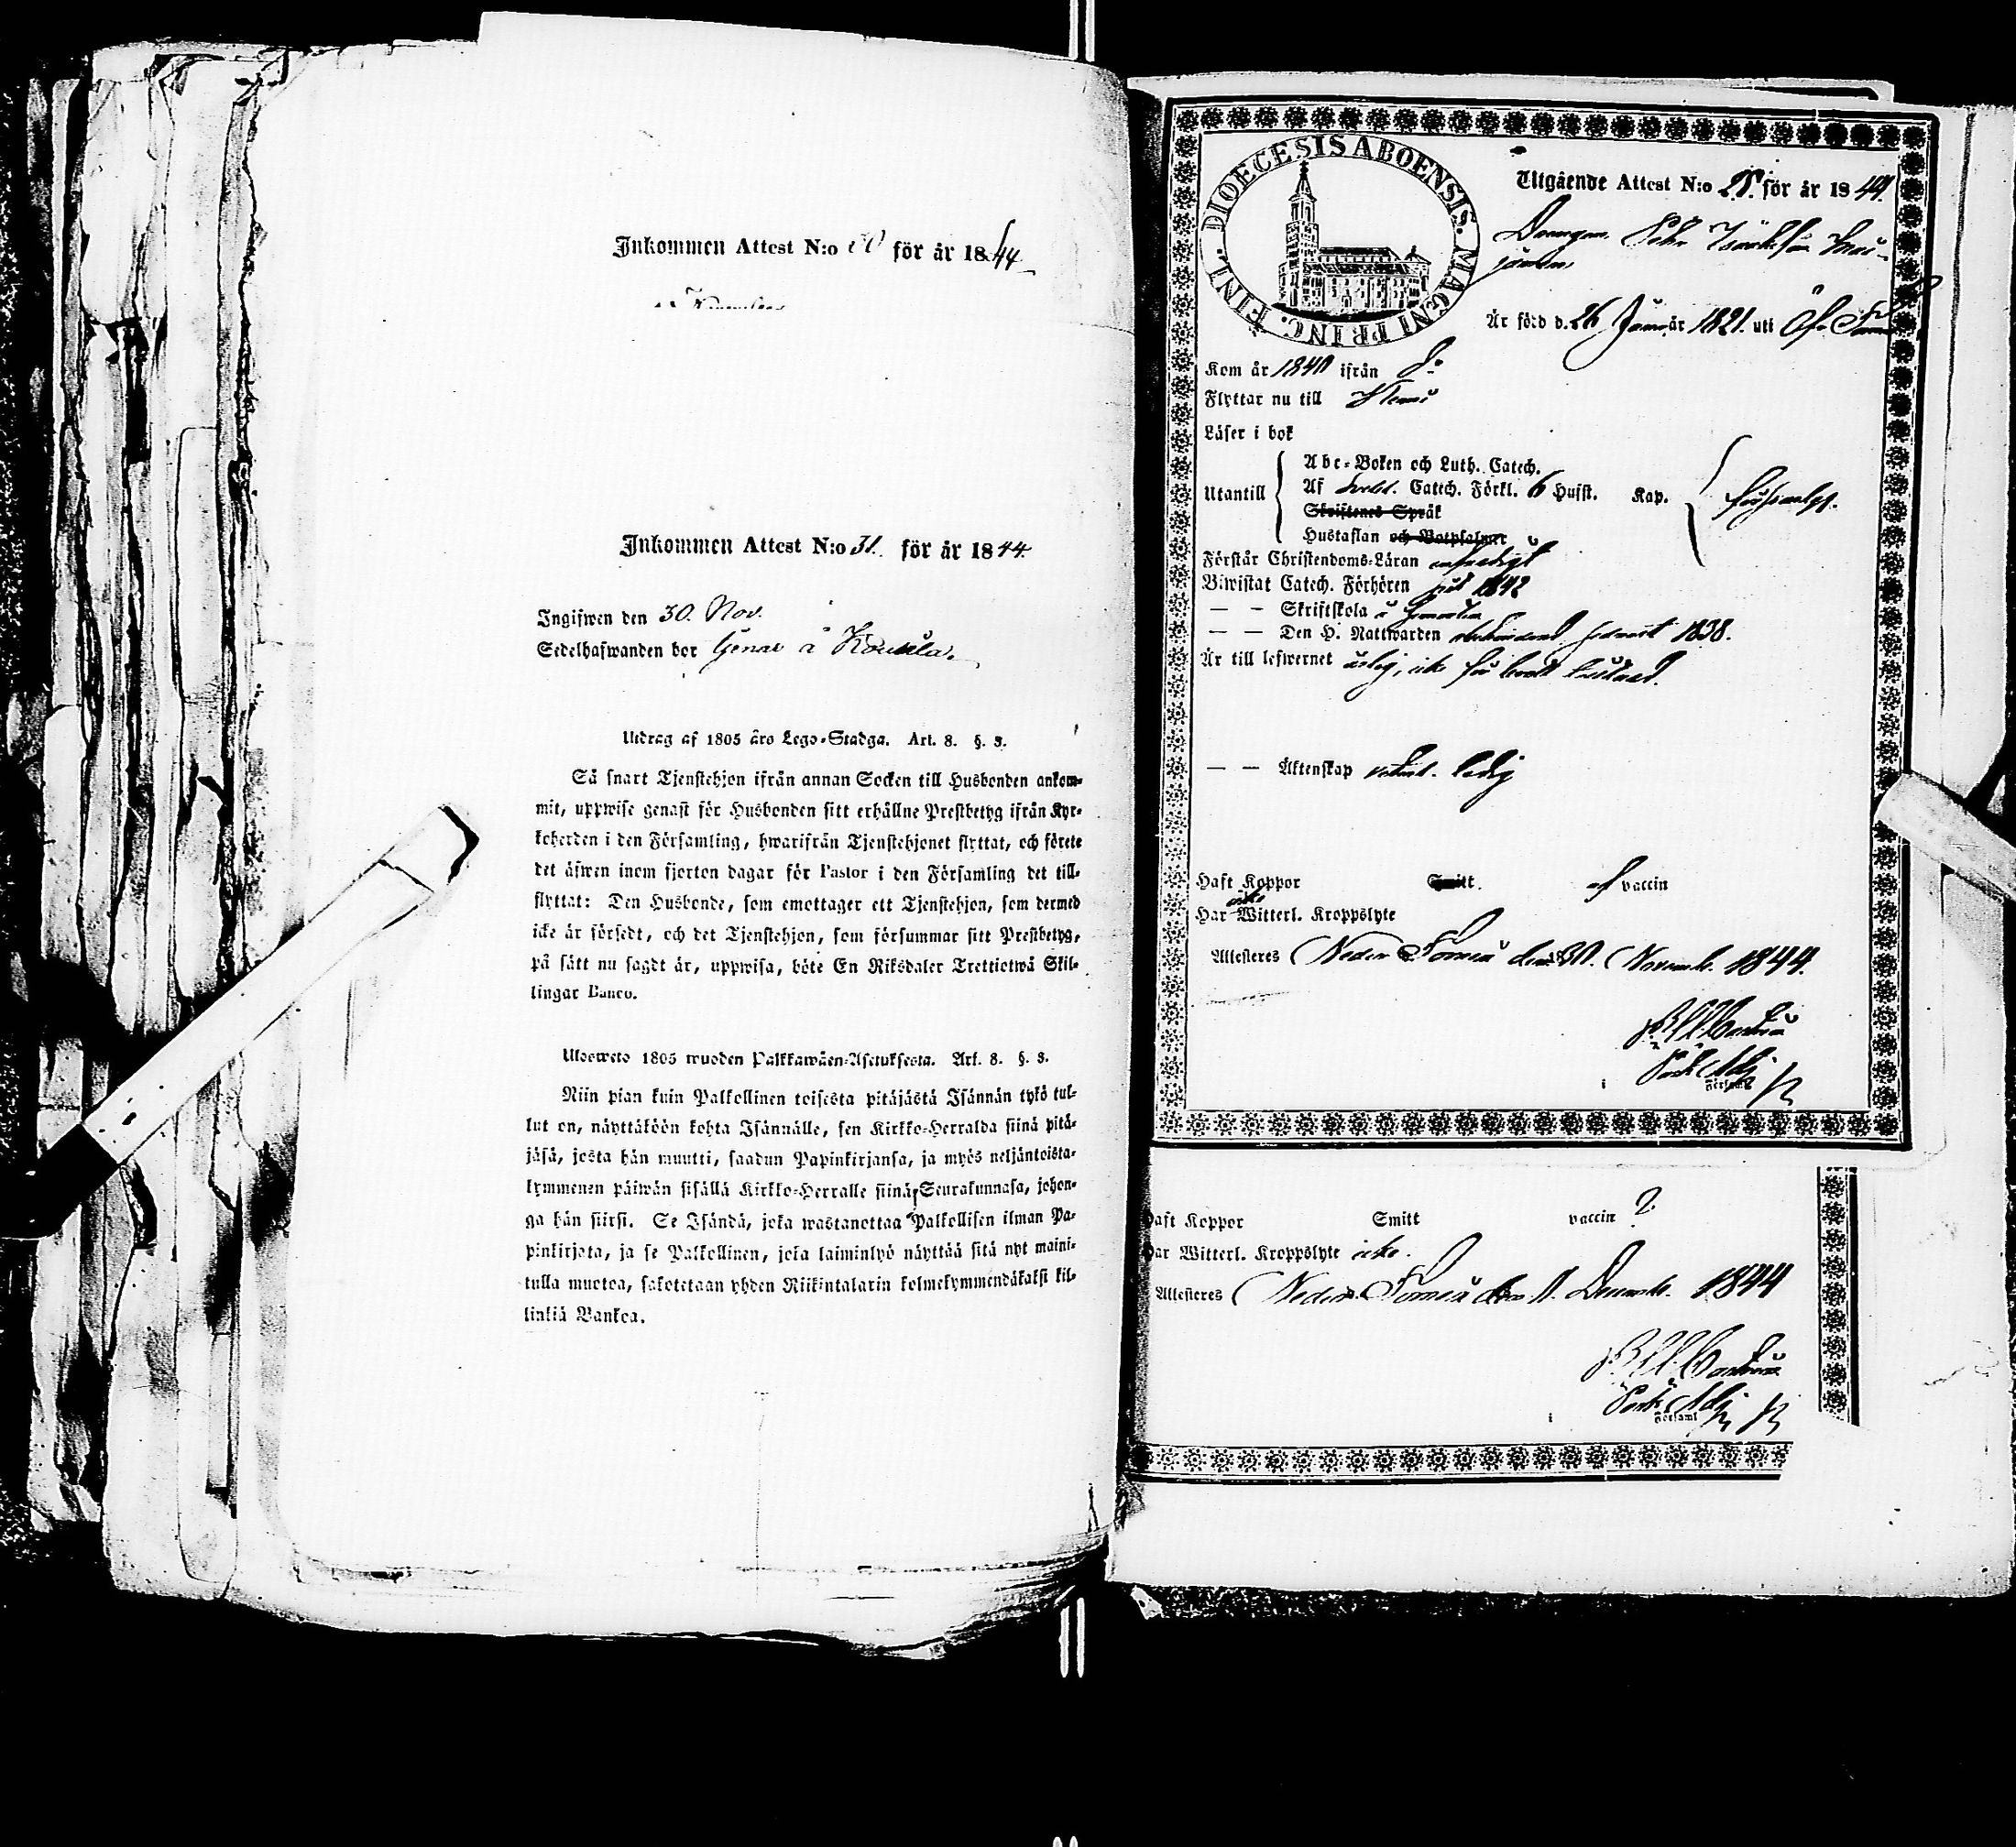 Inkommen Attest N:o för år 1844
Inkommen Attest N:o 31. för år 1844.
Ingifwen den 30. Nov.
Sedelhafwanden bor
Utdrag af 1805 års Lego-Stadga. Art. 8. §. 3.
Så snart Tjenstehjon ifrån annan Socken till Husbonden ankom-
mit, uppwise genast för Husbonden sitt erhållne Prestbetyg ifrån Kyr-
koherden i den Församling, hwarifrån Tjenstehjonet flyttat, och förete
det äfwen inom fjorton dagar för Pastor i den Församling det till-
flyttat: Den Husbonde, som emottager ett Tjenstehjon, som dermed
icke är försedt, och det Tjenstehjon, som försummar sitt Prestbetyg,
på sätt nu sagdt är, uppwisa, böte En Riksdaler Trettiotwå Skil-
lingar Banco.
Ulosweto 1805 wuoden Palkkawäen-Asetuksesta. Art. 8. §. 3.
Niin pian kuin Palkollinen toisesta pitäjästä Isännän tykö tul-
lut on, näyttäköön kohta Isännälle, sen Kirkko-Herralda siinä pitä-
jäsä, josta hän muutti, saadun Papinkirjansa, ja myös neljäntoista-
kymmenen päiwän sisällä Kirkko-Herralle siinä Seurakunnasa, johon-
ga hän siirsi. Se Isändä, joka wastanottaa Palkollisen ilman Pa-
pinkirjata, ja se Palkollinen, joka laiminlyö näyttää sitä nyt maini-
tulla muotoa, sakotetaan yhden Riikintalarin kolmekymmendäkaksi kil-
linkiä Bankoa.
DIOECESIS ABOENSIS. MAGNI PRINC. FINL.
Utgående Attest N:o för år 1844.
Drängen
Är född d. 26 Januar 1821. uti Öfr
Kom år 1840 ifrån do
Flyttar nu till
Läser i bok
Utantill
Abc-Boken och Luth. Catech.
Af Svebil. Catech. Förkl. 6 Hufst. Kap. försvarligt.
Skriftenes Språk
Hustaflan och Botpsalmer
Förstår Christendoms-Läran
Biwistat Catech. Förhören 1842
— — Skriftskola
— — Den H. Nattwarden sednast 1838.
Är till lefwernet ärlig, icke för brott lagförd.
— — Äktenskap ledig
Haft Koppor Smitt. af vaccin
Har icke Witterl. Kroppslyte
Attesteres Neder Torneå den 30. Novemb. 1844.
Past. Adj
i Församl
Haft Koppor Smitt vaccin ?
Har Witterl. Kroppslyte icke.
Attesteres Neder Torneå den Decemb. 1844
Past. Adj
i Församl